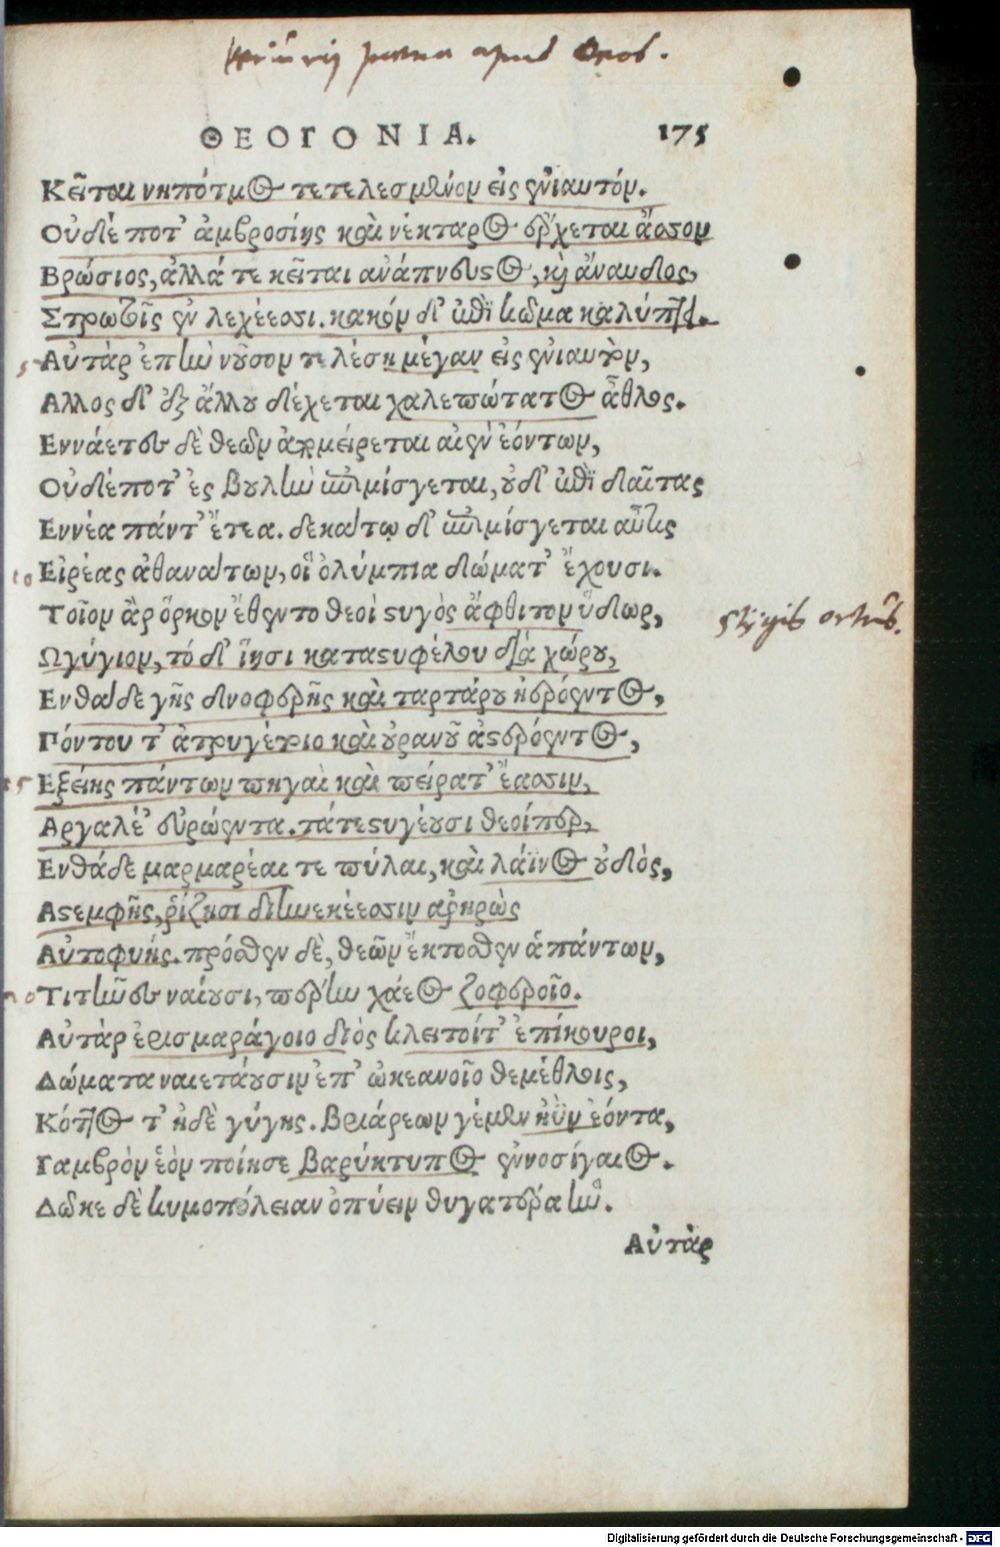 periurij poena apud Deos.
ΘΕΟΓΟΝΙΑ. 175
Κεῖται νηπότμος τετελεσμένον εἰς ἐνιαυτόν.
Οὐδέ ποτ' ἀμβροσίης καὶ νέκταρος ἔρχεται ἄσσον
Βρώσιος, ἀλλά τε κεῖται ἀνάπνευστος, καὶ ἄναυδος,
Στρωτοῖς ἐν λεχέεσσι. κακὸν δ' ἐπὶ κῶμα καλύπτει.
5 Αὐτὰρ ἐπὴν νοῦσον τελέσῃ μέγαν εἰς ἐνιαυτὸν,
Αλλος δ' ἐξ ἄλλου δέχεται χαλεπώτατος ἆθλος.
Εννάετες δὲ θεῶν ἀπαμείρεται αἰὲν ἐόντων,
Οὐδέποτ' ἐς βουλὴν ἐπιμίσγεται, οὐδ' ἐπὶ δαῖτας
Εννέα πάντ' ἔτεα. δεκάτῳ δ' ἐπιμίσγεται αὖτις
10 Εἰρέας ἀθανάτων, οἳ ὀλύμπια δώματ' ἔχουσι.
Τοῖον ἂρ ὅρκον ἔθεντο θεοὶ στυγὸς ἄφθιτον ὕδωρ,
Stygis ortus.
Ωγύγιον, τό δ' ἵησι καταστυφέλου διὰ χώρου,
Ενθάδε γῆς δνοφερῆς καὶ ταρτάρου ἠερόεντος,
Πόντου τ' ἀτρυγέτοιο καὶ οὐρανοῦ ἀστερόεντος,
15 Εξείης πάντων πηγαὶ καὶ πείρατ' ἔασσιν,
Αργαλέ' εὐρώεντα. τάτε στυγέουσι θεοίπερ,
Ενθάδε μαρμαρέαι τε πύλαι, καὶ λάϊνος οὐδὸς,
Αστεμφῆς, ῥίζῃσι διηνεκέεσσιν ἀρηρὼς
Αὐτοφυής. πρόσθεν δὲ, θεῶν ἔκτοσθεν ἁπάντων,
20 Τιτῆνες ναίουσι, πέρην χάεος ζοφεροῖο.
Αὐτὰρ ἐρισμαράγοιο διὸς κλειτοίτ' ἐπίκουροι,
Δώματα ναιετάουσιν ἐπ' ὠκεανοῖο θεμέθλοις,
Κόττος τ' ἠδὲ γύγης. βριάρεων γέμεν ἠῢν ἐόντα,
Γαμβρὸν ἑὸν ποίησε βαρύκτυπος ἐννοσίγαιος.
Δῶκε δὲ κυμοπόλειαν ὀπύειν θυγατέρα ἥν.
Αὐτὰρ
Digitalisierung gefördert durch die Deutsche Forschungsgemeinschaft - DFG